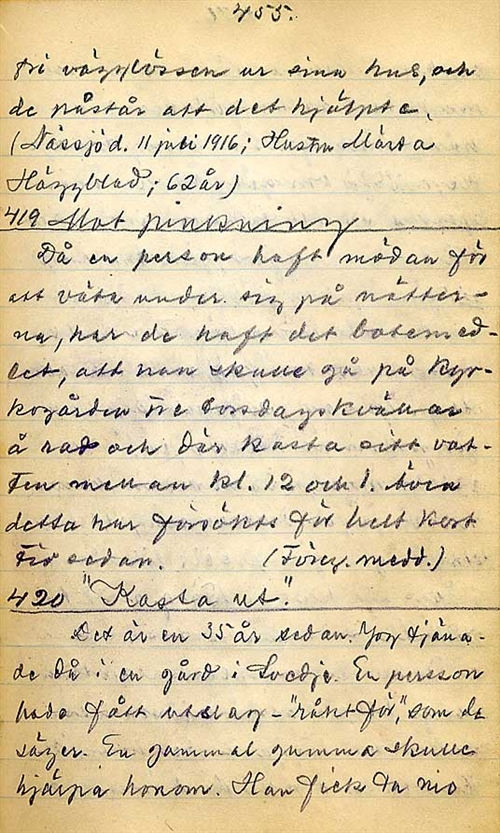 455.
fri vägglössen ur sina hus, och
de påstår att det hjälpte.
(Nässjö d. 11 juli 1916; Hustru Märta
Häggblad; 62 år)
419 Mot pinkning
Då en person haft mödan för
att väta under sig på nätter-
na, har de haft det botemed-
let, att man skulle gå på kyr-
kogården tre torsdagskvällar
å rad och där kasta sitt vat-
ten mellan kl. 12 och 1.
detta har försökts för helt kort
tid sedan. (Föreg. medd.)
420 "Kasta ut".
Det är en 35 år sedan. Jag tjäna-
de då i en gård i Loedje. En person
hade fått utslag - "råkt för," som de
säger. En gammal gumma skulle
hjälpa honom. Han fick ta nio